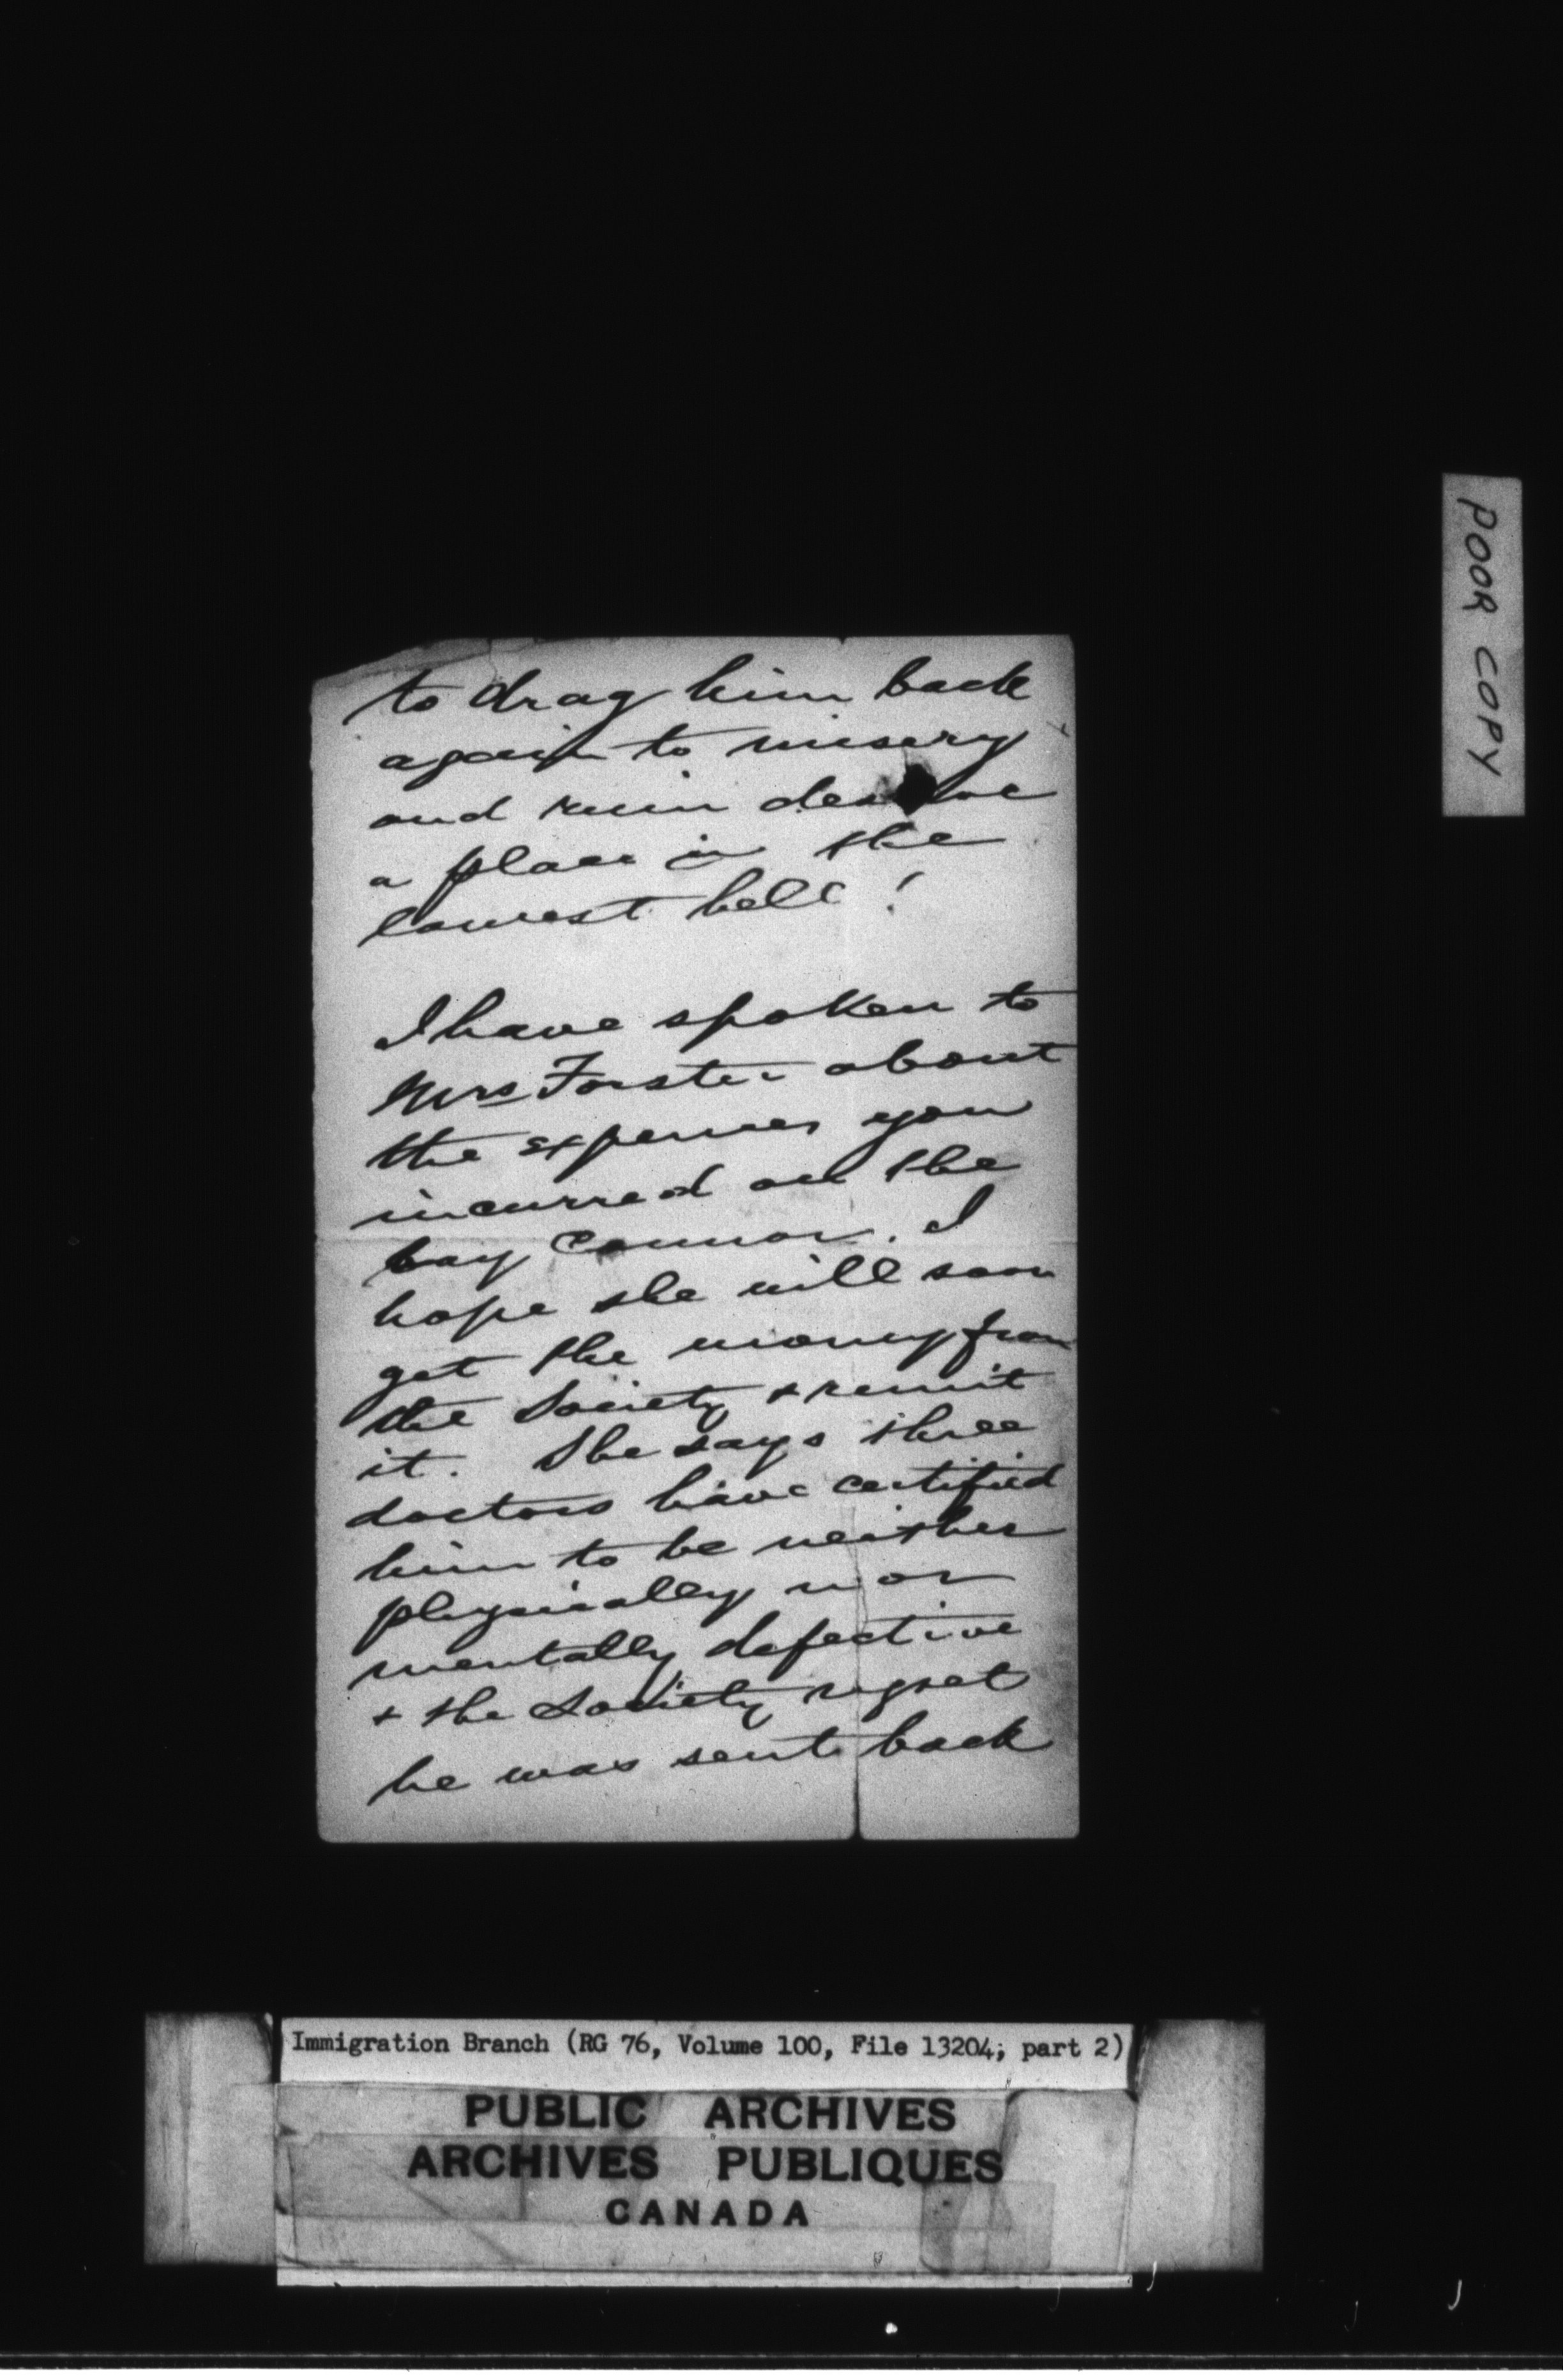 to drag him back
again to misery
and ruin deserve
a place in the
lowest hell!
I have spoken to
Mrs Forster about
the expenses you
incurred on the
boy Connor. I
hope she will soon
get the money from
the Society + remit
it. She says three
doctors have certified
him to be neither
physically nor
mentally defective
+ the Society regret
he was sent back
POOR COPY
Immigration Branch (RG 76, Volume 100, File 13204; part 2)
PUBLIC ARCHIVES
ARCHIVES PUBLIQUES
CANADA